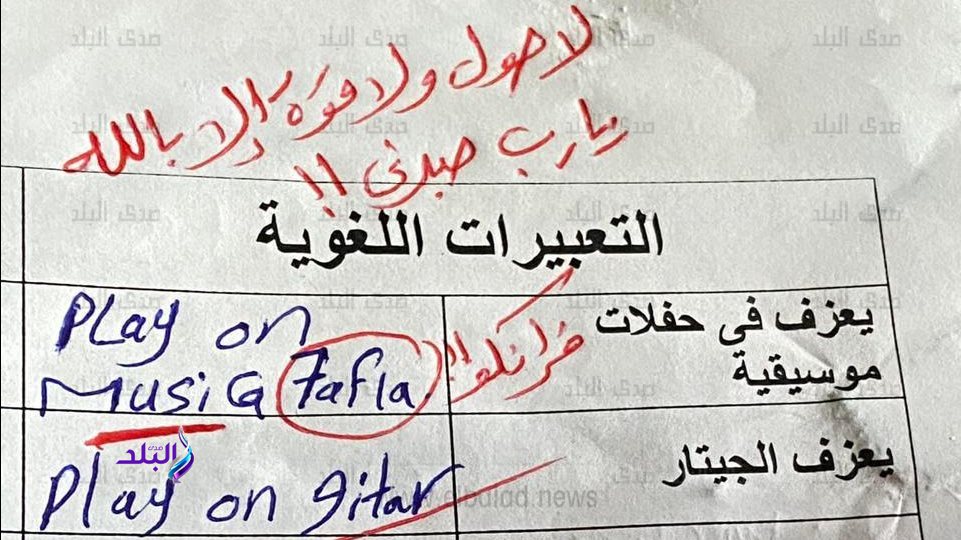 لا حول ولا قوة إلا بالله
يارب صبرني !!
التعبيرات اللغوية
يعزف في حفلات
موسيقية
Play on
Music 7afla
فرانكو!!
يعزف الجيتار
Play on gitar
صدى البلد
elbalad.news